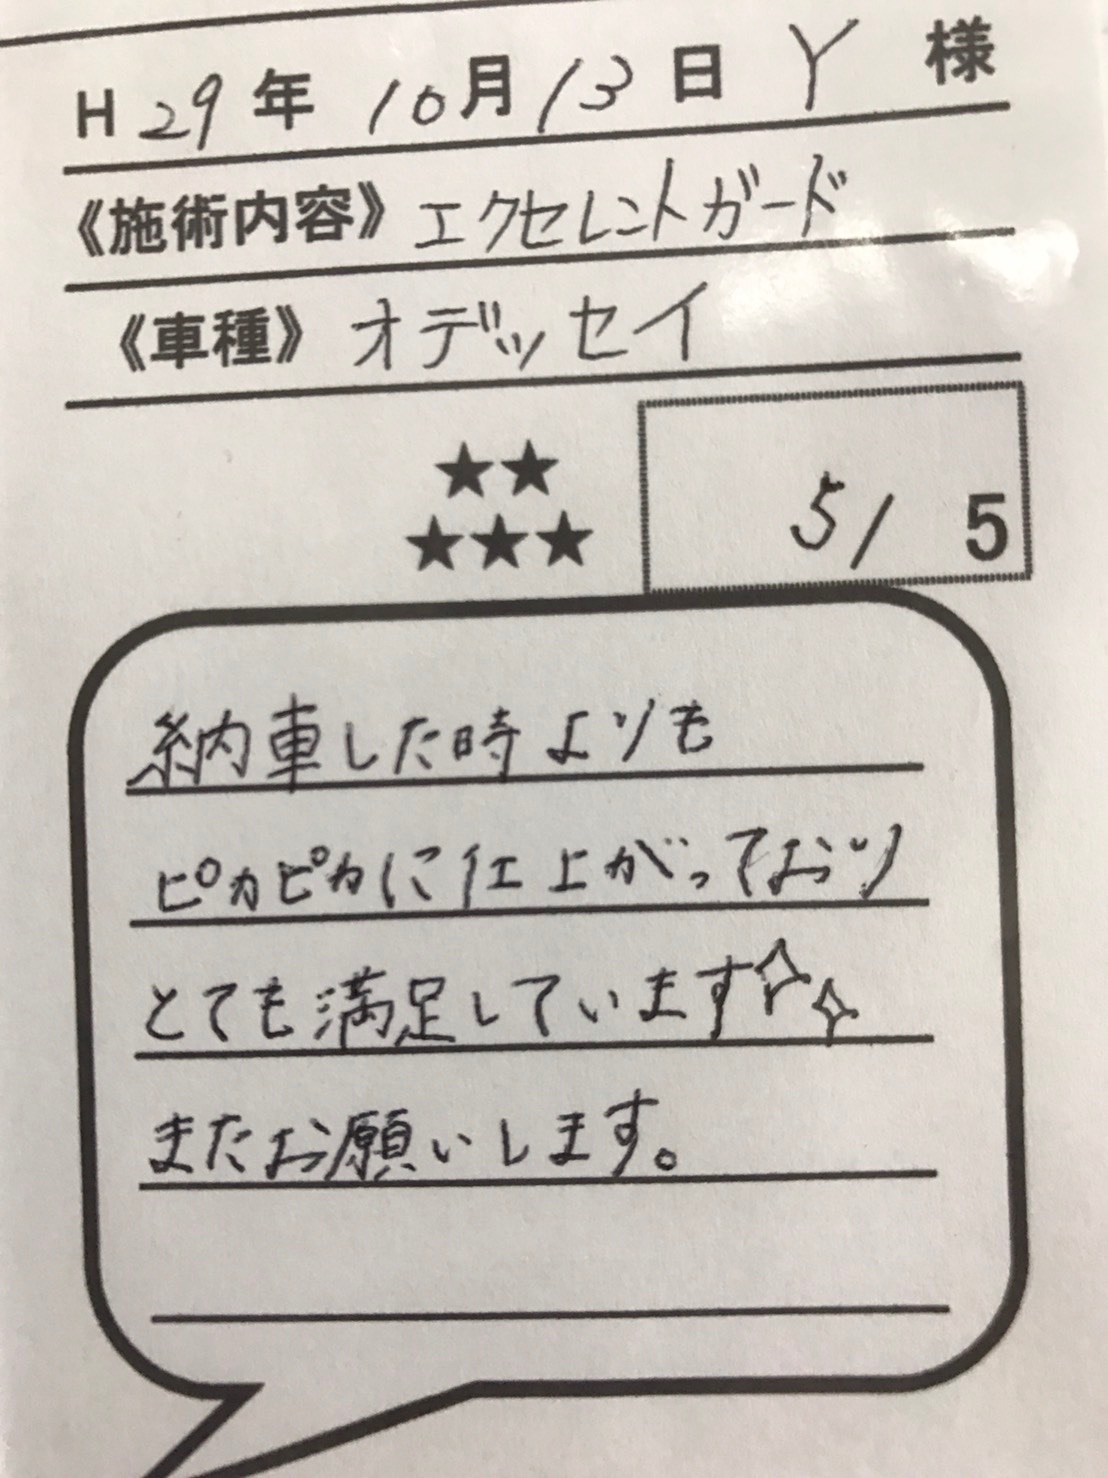 H 29 年 10 月 13 日 Y 様
《施術内容》 エクセレントガード
《車種》 オデッセイ
★★
★★★
5/ 5
納車した時よりも
ピカピカに仕上がっており
とても満足しています
またお願いします。